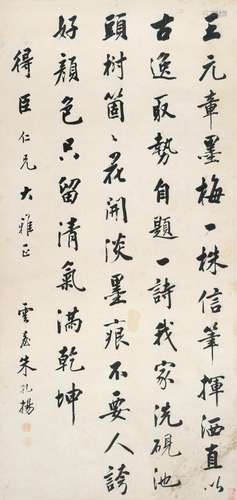 王元章墨梅一株信筆揮洒直以
古逸取勢自題一詩我家洗硯池
頭樹箇〻花開淡墨痕不要人誇
好顔色只留清氣滿乾坤
得臣仁兄大雅正
雲 朱孔揚